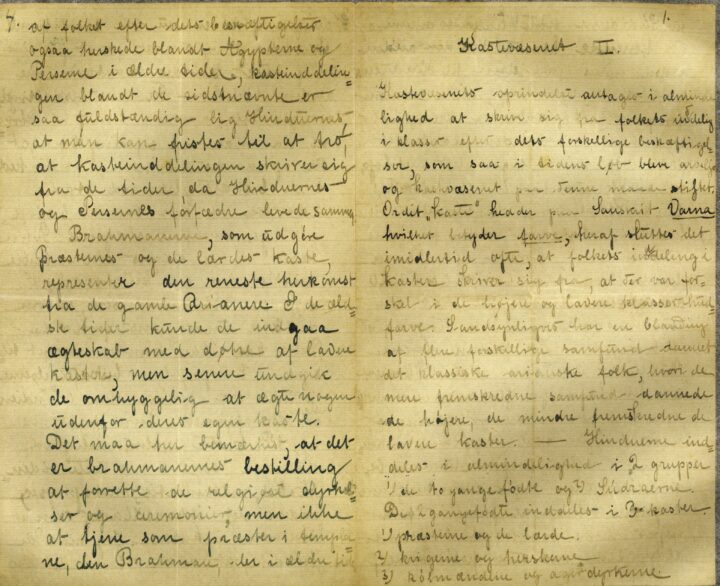 7.
af folket efter dets beskæftigelser
ogsaa herskede blandt Ægypterne og
Perserne i ældre tider, kasteinddelin-
gen blandt de sidstnævnte er
saa fuldstændig lig Hinduernes
at man kan fristes til at tro,
at kasteinddelingen skriver sig
fra de tider, da Hinduernes
og Persernes forfædre levede sammen
Brahmanerne, som udgöre
præsternes og de lærdes kaste,
representer den reneste herkomst
fra de gamle Arianere I de æld=
ste tider kunde de indgaa
ægteskab med døtre af lavere
kaster, men senere undgik
de omhyggelig at ægte nogen
udenfor deres egen kaste.
Det maa her bemærkes, at det
er brahmanernes bestilling
at forrette de religiøse dyrkel=
ser og ceremonier, men ikke
at tjene som præster i temple=
ne, den Brahman, der i ældre tid
1.
Kastevæsenet II.
Kastevæsenets oprindelse antages i alminde
lighed at skrive sig fra folkets inddeling
i klasser efter dets forskellige beskæftigel=
ser, som saa i tidens løb bleve arvelige
og kastevæsenet paa denne maade stiftet.
Ordet "Kaste" heder paa Sanskrit Varna
hvilket betyder farve, heraf sluttes det
imidlertid ofte, at folkets inddeling i
kaster skriver sig fra, at der var for=
skel i de højere og lavere klassers hud=
farve. Sandsynligvis har en blanding
af flere forskellige samfund dannet
det klassiske arianske folk, hvori de
mere fremskredne samfund dannede
de højere, de mindre fremskredne de
lavere kaster. — Hinduerne ind=
deles i almindelighed i 2 grupper
1) de to gange fødte og 2) Sudraerne.
De 2 gangefødte inddeles i 3 kaster.
1) præsterne og de lærde.
2) krigerne og herskerne
3) kølmændene og agerdyrkerne.